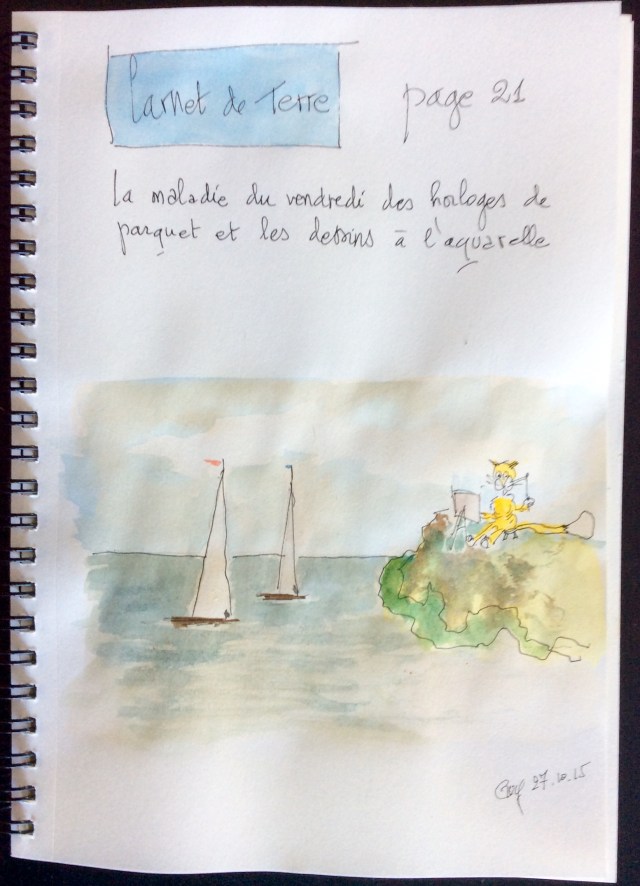 Carnet de Terre
page 21
La maladie du vendredi des horloges de
parquet et les dessins à l'aquarelle
27.10.15